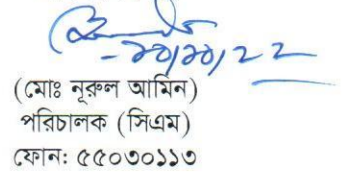 ২০/১০/২২
(মোঃ নূরুল আমিন)
পরিচালক (সিএম)
ফোন: ৫৫০৩০১১৩